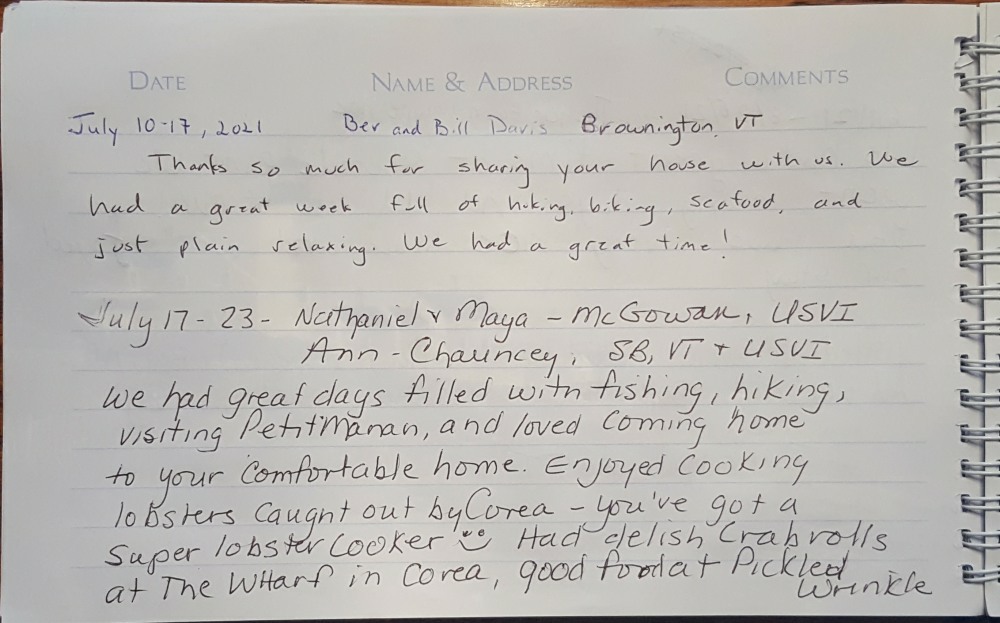 DATE NAME & ADDRESS COMMENTS
July 10-17, 2021 Bev and Bill Davis Brownington, VT
Thanks so much for sharing your house with us. We
had a great week full of hiking, biking, seafood, and
just plain relaxing. We had a great time!
July 17 - 23 - Nathaniel & Maya - McGowan, USVI
Ann - Chauncey, SB, VT + USVI
We had great days filled with fishing, hiking,
visiting Petit Manan, and loved coming home
to your comfortable home. Enjoyed cooking
lobsters caught out by Corea - you've got a
super lobster cooker Had delish Crab rolls
at The Wharf in Corea, good food at Pickled
Wrinkle